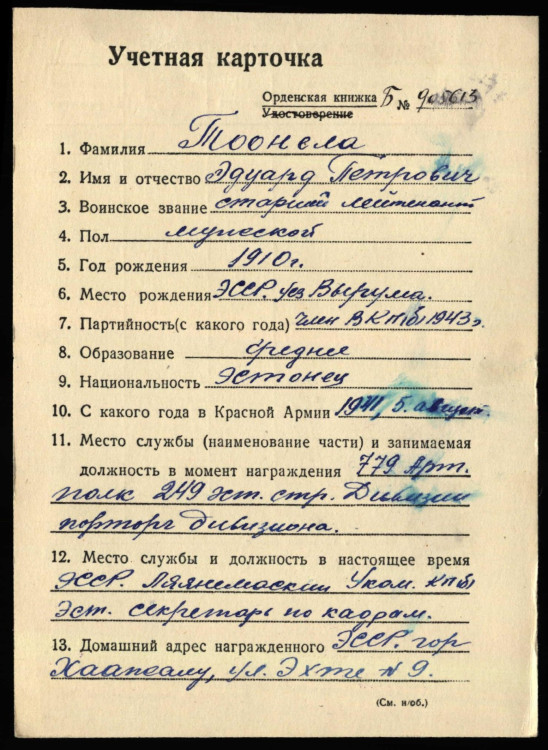 Учетная карточка
Орденская книжка Б № 905613
Удостоверение
1. Фамилия Тоонела
2. Имя и отчество Эдуард Петрович
3. Воинское звание старший лейтенант
4. Пол мужской
5. Год рождения 1910 г.
6. Место рождения ЭССР. уез Вырума.
7. Партийность(с какого года) член ВКП(б) 1943 г.
8. Образование среднее
9. Национальность Эстонец
10. С какого года в Красной Армии 1941, 5. август.
11. Место службы (наименование части) и занимаемая
должность в момент награждения 779 Арт.
полк 249 эст. стр. Дивизии
парторг дивизиона.
12. Место службы и должность в настоящее время
ЭССР. Ляянемаский Уком. КП(б)
Эст. секретарь по кадрам.
13. Домашний адрес награжденного ЭССР. гор
Хаапсалу, ул. Эхте № 9.
(См. н/об.)